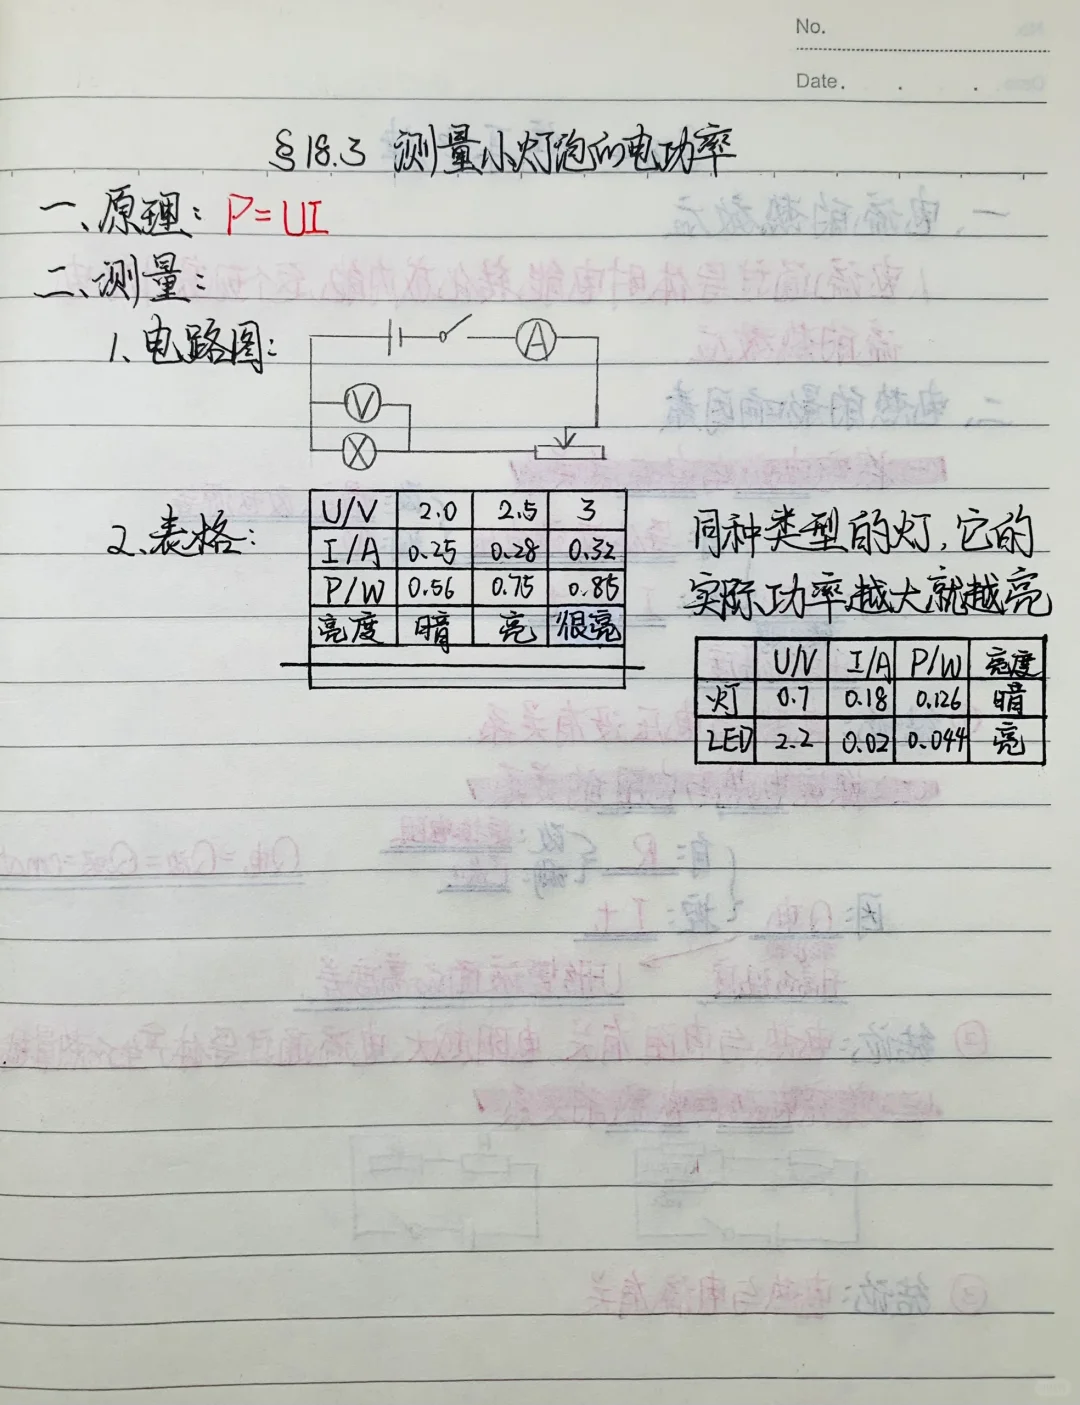 No.
Date.
§18.3 测量小灯泡的电功率
一、原理：P=UI
二、测量：
1、电路图：
A
V
2、表格：
U/V 2.0 2.5 3
I/A 0.25 0.28 0.32
P/W 0.56 0.75 0.85
亮度 暗 亮 很亮
同种类型的灯，它的
实际功率越大就越亮
U/V I/A P/W 亮度
灯 0.7 0.18 0.126 暗
LED 2.2 0.02 0.044 亮